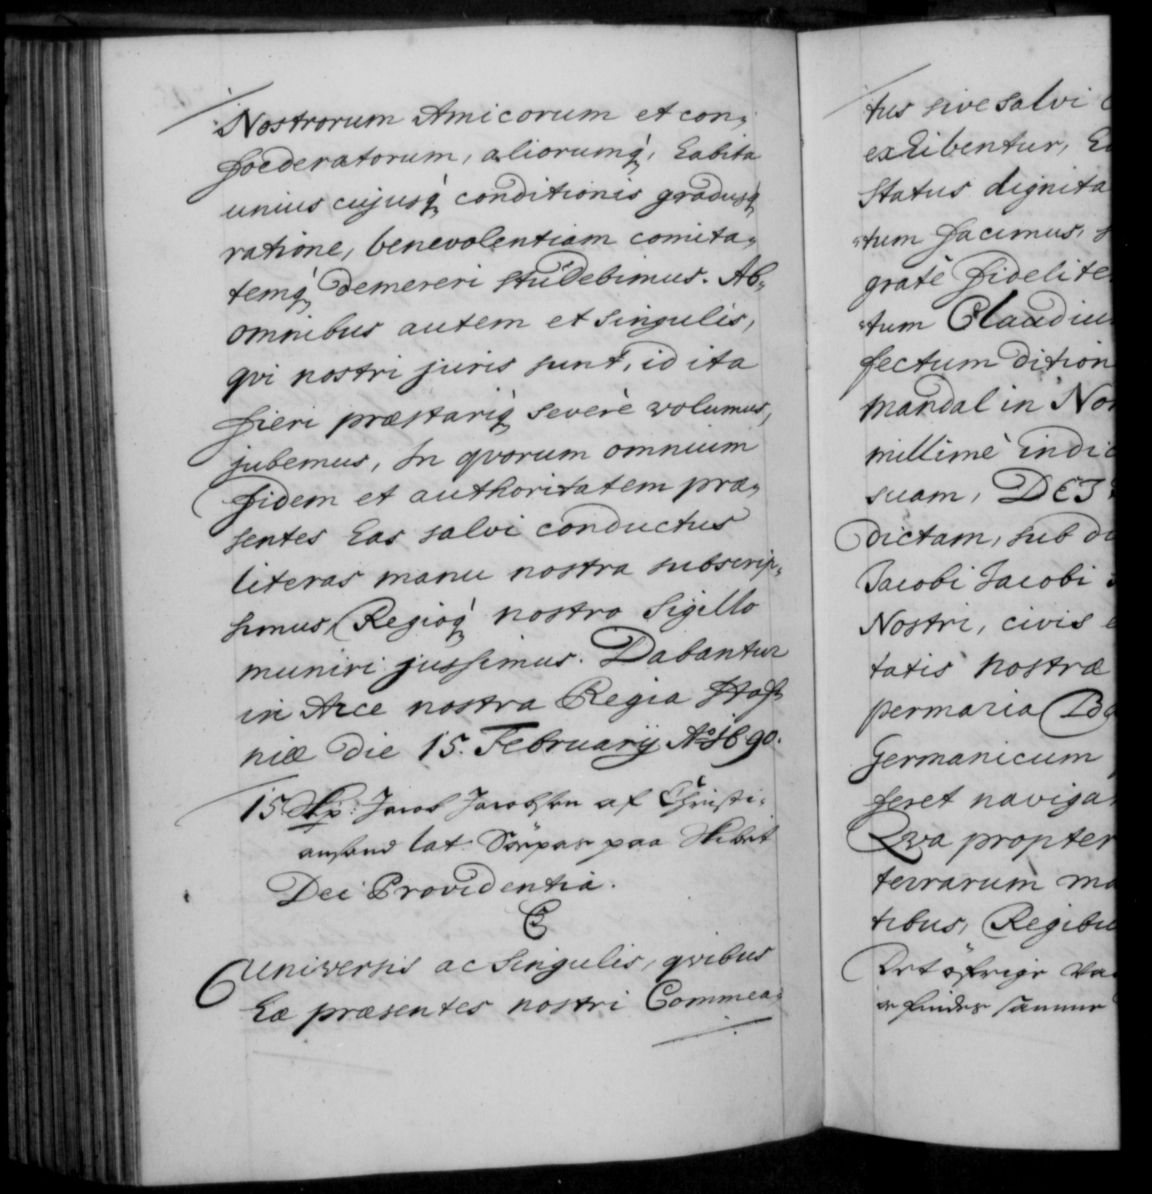 Nostrorum Amicorum et con„
foederatorum, aliorumq;, habita
unius cujusq; conditionis gradusq;
ratione, benevolentiam comita„
temq; demereri studebimus. Ab„
omnibus autem et singulis,
qvi nostri juris sunt, id ita
fieri præstariq; severè volumus,
jubemus, In qvorum omnium
fidem et authoritatem præ„
sentes has salvi conductus
literas manu nostra subscrip„
simus, Regioq; nostro Sigillo
muniri jussimus. Dabantur
in Arce nostra Regia Haff„
niæ die 15. Februarij Aō 1690.
15 Jacob Jacobsen af Christi„
ansand lat. Söepas paa Skibet
Dei Providentia.
C5
Universis ac singulis, qvibus
hæ præsentes nostri Commea„
tus sive salvi
exhibentur,
Status dignita
„tum facimus,
gratè fidelite
„tum Claudiu
fectum dition
Mandal in Nor
millimè indic
suam, DEI
dictam, sub
Jacobi Jacobi
Nostri, civis
tatis nostræ
per maria
Germanicum
feret naviga
Qva propter
terrarum ma
tibus, Regibu
Det öfrige
findes samme